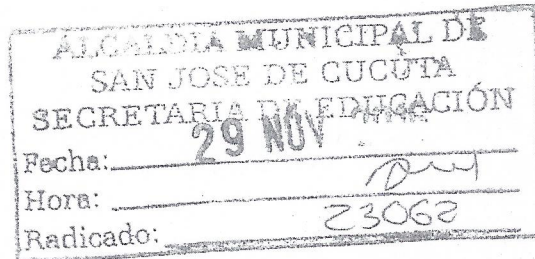 ALCALDIA MUNICIPAL DE
SAN JOSE DE CUCÚTA
SECRETARIA DE EDUCACIÓN
29 NOV
Fecha:
Hora:
Radicado: 23062